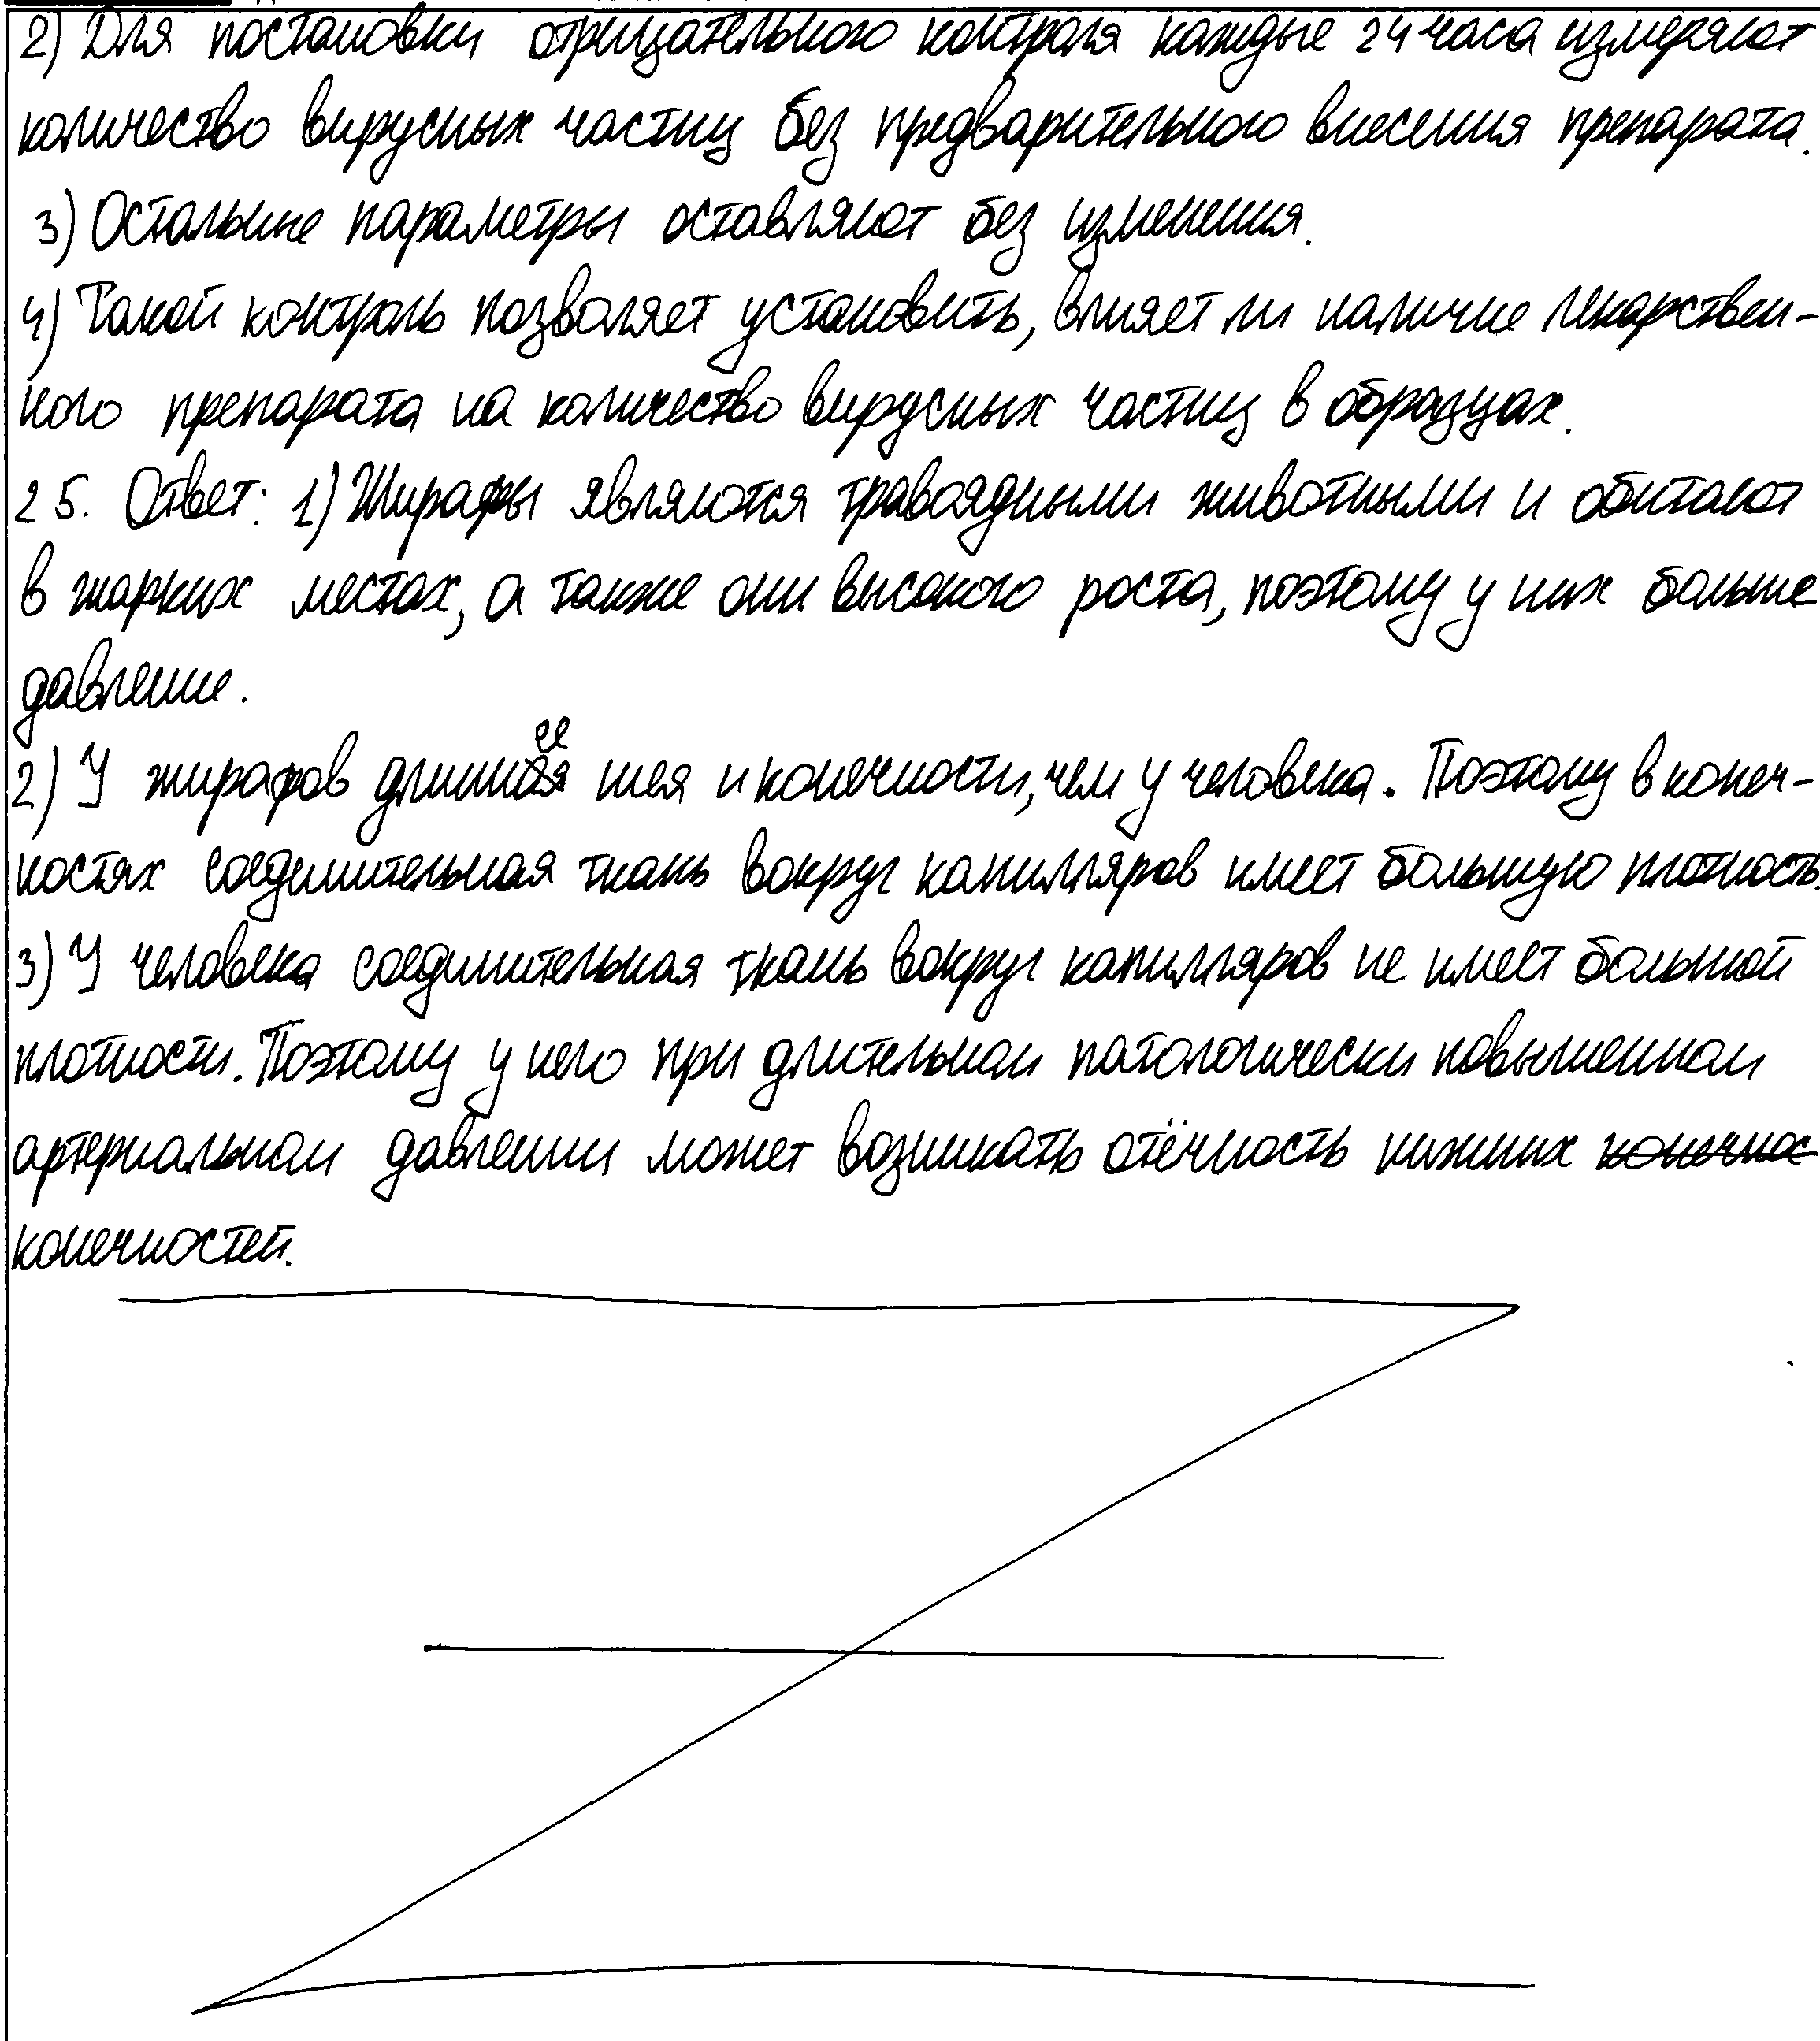 2) Для постановки отрицательного контроля каждые 24 часа измеряют
количество вирусных частиц без предварительного внесения препарата.
3) Остальные параметры оставляют без изменения.
4) Такой контроль позволяет установить, влияет ли наличие лекарствен-
ного препарата на количество вирусных частиц в образцах.
25. Ответ: 1) Жирафы являются травоядными животными и обитают
в жарких местах, а также они высокого роста, поэтому у них больше
давление.
2) У жирафов длиннее шея и конечности, чем у человека. Поэтому в конеч-
ностях соединительная ткань вокруг капилляров имеет большую плотность.
3) У человека соединительная ткань вокруг капилляров не имеет большой
плотности. Поэтому у него при длительном патологически повышенном
артериальном давлении может возникать отёчность нижних конечнос
конечностей.